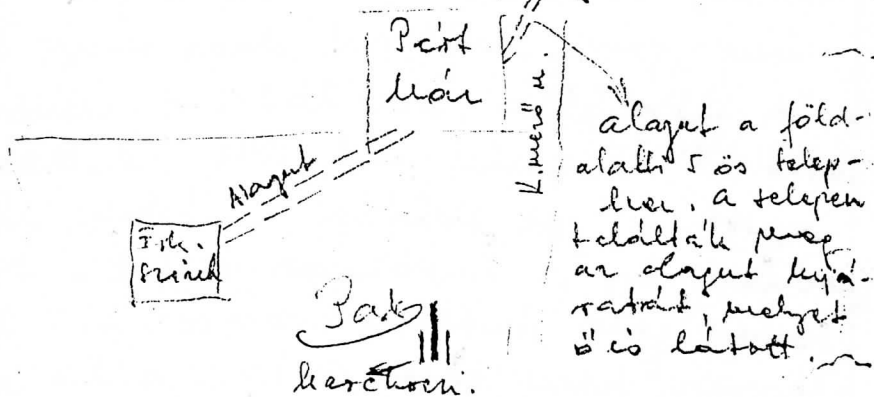 Párt
ház
K. mező u.
Alagut
alagut a föld-
alatti 5 ös telep-
hez. A telepen
találták meg
az alagut kijá-
ratát, melyet
ő is látott.